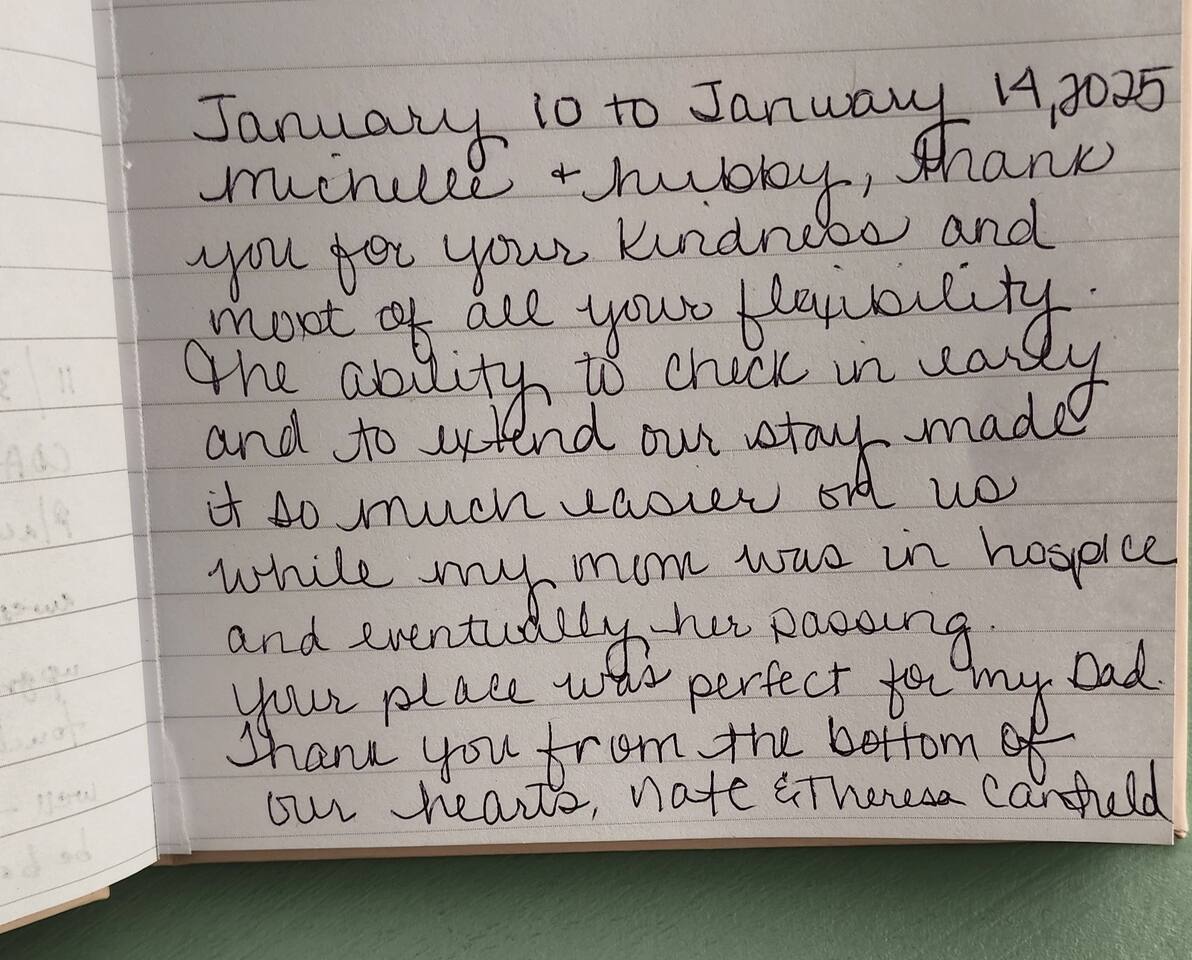 January 10 to January 14, 2025
Michelle + hubby, thank
you for your kindness and
most of all your flexibility.
The ability to check in early
and to extend our stay made
it so much easier on us
while my mom was in hospice
and eventually her passing.
Your place was perfect for my Dad.
Thank you from the bottom of
our hearts, Nate & Theresa Canfield